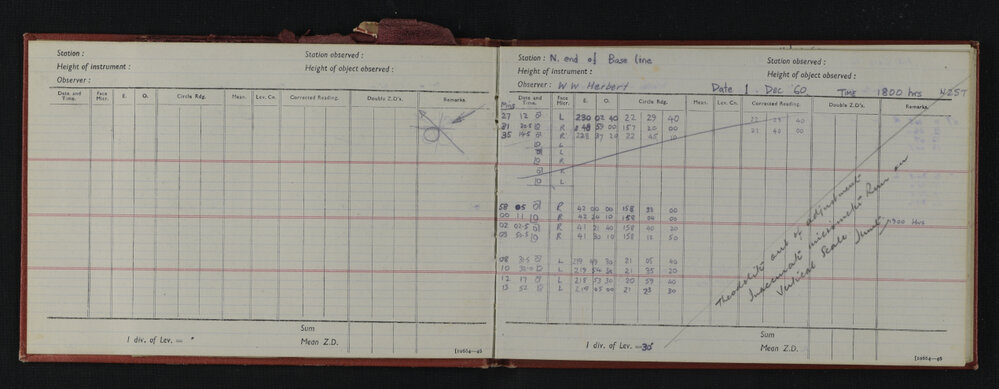 Station :
Station observed :
Height of instrument :
Height of object observed :
Observer :
Date and Time. Face Micr. E. O. Circle Rdg. Mean. Lev. Co. Corrected Reading. Double Z.D's. Remarks.
1 div. of Lev. = "
Sum
Mean Z.D.
[19664—48
Station : N. end of Base line
Station observed :
Height of instrument :
Height of object observed :
Observer : W W Herbert Date 1 Dec '60 Time 1800 hrs NZST
Date and Time. Face Micr. E. O. Circle Rdg. Mean. Lev. Co. Corrected Reading. Double Z.D's. Remarks.
Mins
27 12 L 230 02 40 22 29 40 22 29 40
31 20.5 R 48 59 00 157 20 00 21 40 00
35 14.5 R 228 37 20 22 45 10
L
L
R
R
L
58 05 R 42 00 00 158 00
00 11 R 42 20 10 158 00
02 02.5 R 41 21 40 158 40 20 1900 Hrs
03 50.5 R 41 30 10 158 12 50
08 31.5 L 219 49 30 21 05 40
10 30.0 L 219 54 30 21 35 20
12 17 L 218 53 30 20 59 40
13 52 L 219 05 00 21 23 30
Theodolite out of adjustment
Inaccurate micrometer Run on
Vertical Scale
1 div. of Lev. = 30"
Sum
Mean Z.D.
[19664—48